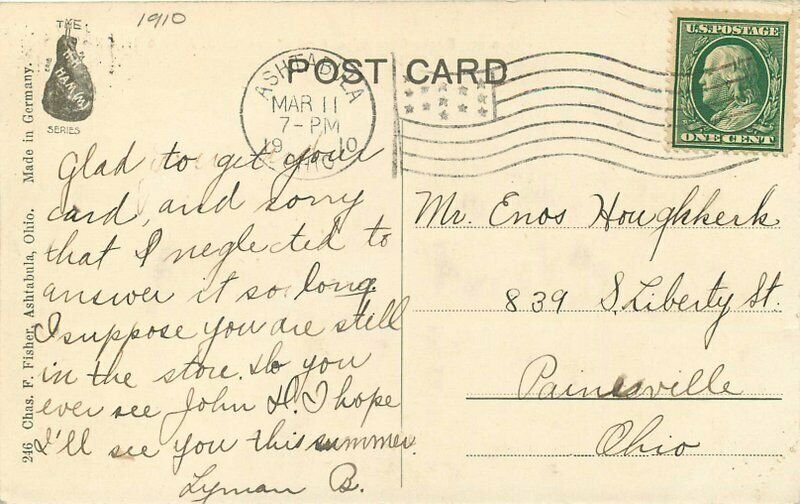 1910
THE
HAM
SERIES
POST CARD
ASHTABULA
MAR 11
7-PM
19 10
OHIO
U.S. POSTAGE
ONE CENT
246 Chas. F. Fisher, Ashtabula, Ohio. Made in Germany.
Glad to get your
card, and sorry
that I neglected to
answer it so long
I suppose you are still
in the store. do you
ever see John D. I hope
I'll see you this summer.
Lyman B.
Mr. Enos Houghkerk
839 S. Liberty St.
Painesville
Ohio